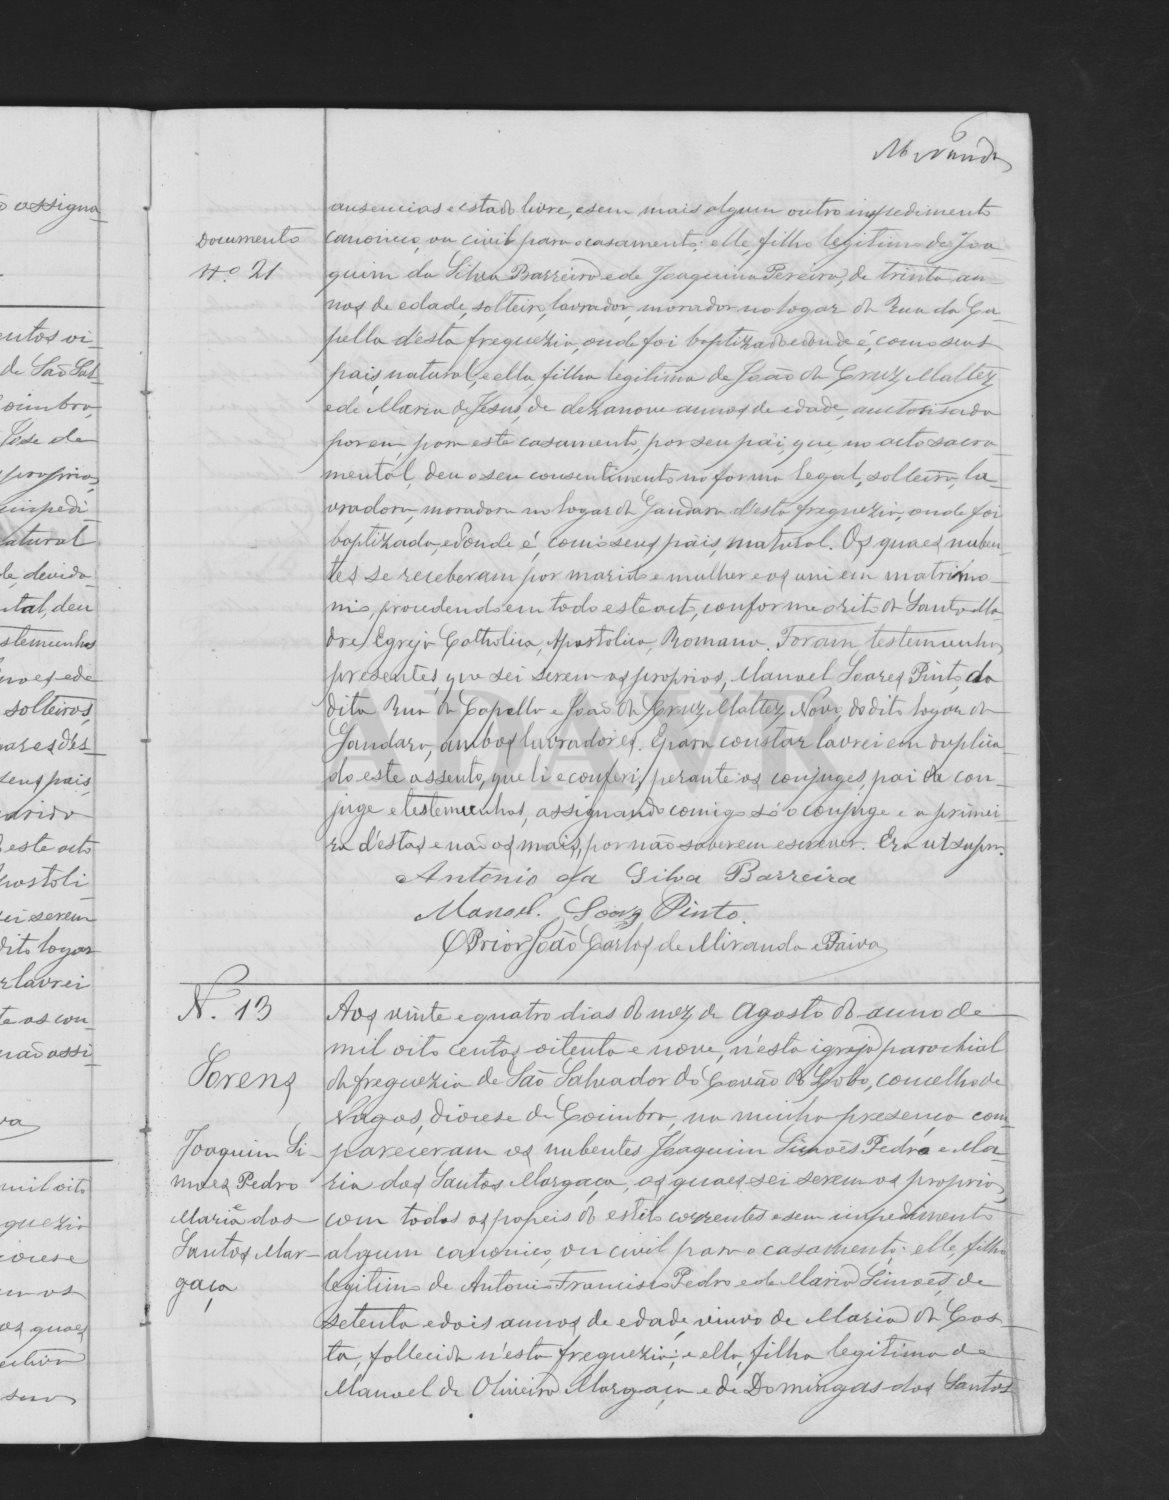 6
Miranda
o assigna
Documento
Nº 21
ausencias e estado livre, e sem mais algum outro impedimento
canonico, ou civil para o casamento: elle, filho legitimo de Joa-
quim da Silva Barreira e de Joaquina Pereira, de trinta an-
nos de edade, solteiro, lavrador, morador no logar da Rua da Ca-
pella d'esta freguezia, onde foi baptizado e donde é, como seus
pais, natural, e ella filha legitima de João da Cruz Maltez
e de Maria de Jesus, de dezanove annos de edade, auctorisada
porem, para este casamento, por seu pai, que, no acto sacra-
mental, deu o seu consentimento na forma legal, solteira, la-
vradora, moradora no logar da Gandara d'esta freguezia, onde foi
baptizada, e donde é, como seus pais, natural. Os quaes nuben-
tes se receberam por marido e mulher e os uni em matrimo-
nio, procedendo em todo este acto, conforme o rito da Santa Ma-
dre Egreja Catholica, Apostolica, Romana. Foram testemunhas
presentes, que sei serem os proprios, Manoel Soares Pinto, da
dita Rua da Capella e João da Cruz Maltez Novo, do dito logar da
Gandara, ambos lavradores. E para constar lavrei em duplica-
do este assento, que li e conferi, perante os conjuges, pai da con-
juge e testemunhas, assignando comigo só o conjuge e a primei-
ra d'estas e não os mais, por não saberem escrever. Era ut supra.
Antonio da Silva Barreira
Manoel Soarz Pinto.
O Prior João Carlos de Miranda e Paiva
N. 13
Sorens
Joaquim Si-
moes Pedro
e
Maria dos
Santos Mar-
gaça
Aos vinte e quatro dias do mez de Agosto do anno de
mil oito centos oitenta e nove, n'esta igreja parochial
da freguezia de São Salvador do Covão do Lobo, concelho de
Vagos, diocese de Coimbra, na minha presença com-
pareceram os nubentes Joaquim Simões Pedro e Ma-
ria dos Santos Margaça, os quaes sei serem os proprios,
com todos os papeis do estilo correntes e sem impedimento
algum canonico, ou civil para o casamento: elle, filho
legitimo de Antonio Francisco Pedro e de Maria Simões, de
setenta e dois annos de edade, viuvo de Maria da Cos-
ta, fallecida n'esta freguezia; e ella, filha legitima de
Manoel de Oliveira Margaça e de Domingas dos Santos
ADAVR